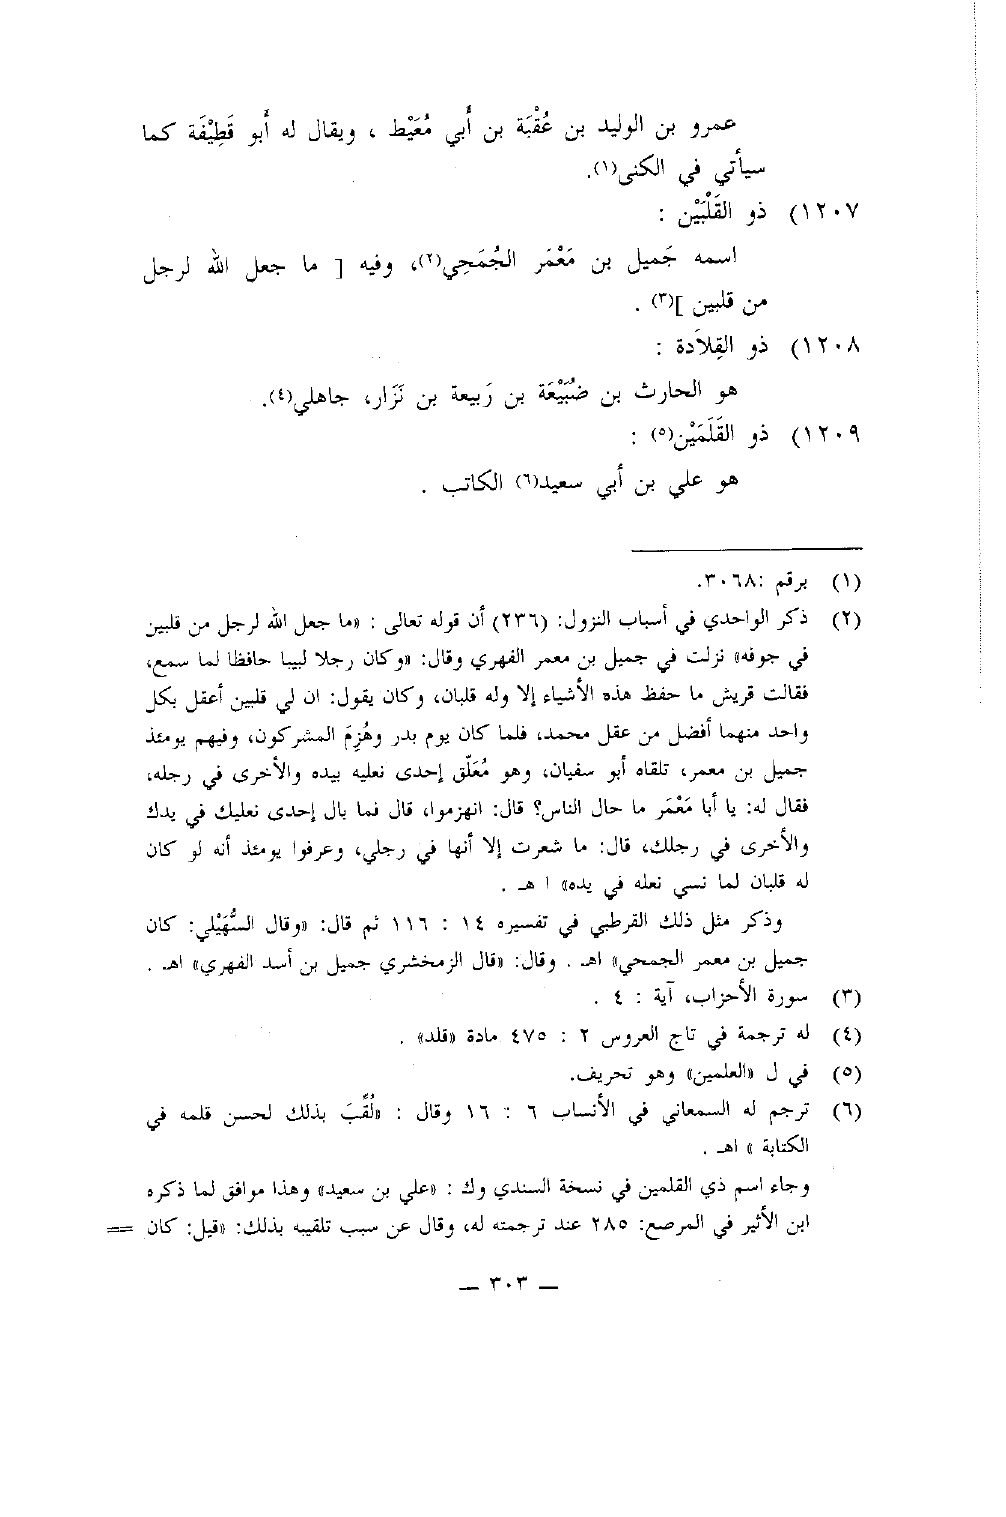 عمرو بن الوليد بن عُقْبَة بن أَبي مُعَيْط ، ويقال له أَبو قَطِيْفَة كما
سيأتي في الكنى(١).
١٢٠٧) ذو القَلْبَيْن :
اسمه جَميل بن مَعْمَر الجُمَحِي(٢)، وفيه [ ما جعل الله لرجل
من قلبين ](٣) .
١٢٠٨) ذو القِلاَدة :
هو الحارث بن ضُبَيْعَة بن رَبيعة بن نَزَار، جاهلي(٤).
١٢٠٩) ذو القَلَمَيْن(٥) :
هو علي بن أبي سعيد(٦) الكاتب .
(١) برقم :٣٠٦٨.
(٢) ذكر الواحدي في أسباب النزول: (٢٣٦) أن قوله تعالى : «ما جعل الله لرجل من قلبين
في جوفه» نزلت في جميل بن معمر الفهري وقال: «وكان رجلا لبيبا حافظا لما سمع،
فقالت قريش ما حفظ هذه الأشياء إلا وله قلبان، وكان يقول: ان لي قلبين أعقل بكل
واحد منهما أفضل من عقل محمد، فلما كان يوم بدر وهُزِمَ المشركون، وفيهم يومئذ
جميل بن معمر، تلقاه أبو سفيان، وهو مُعَلّق إحدى نعليه بيده والأخرى في رجله،
فقال له: يا أبا مَعْمَر ما حال الناس؟ قال: انهزموا، قال فما بال إحدى نعليك في يدك
والأخرى في رجلك، قال: ما شعرت إلا أنها في رجلي، وعرفوا يومئذ أنه لو كان
له قلبان لما نسي نعله في يده» ا هـ .
وذكر مثل ذلك القرطبي في تفسيره ١٤ : ١١٦ ثم قال: «وقال السُّهَيْلي: كان
جميل بن معمر الجمحي» اهـ . وقال: «قال الزمخشري جميل بن أسد الفهري» اهـ .
(٣) سورة الأحزاب، آية : ٤ .
(٤) له ترجمة في تاج العروس ٢ : ٤٧٥ مادة «قلد» .
(٥) في ل «العلمين» وهو تحريف.
(٦) ترجم له السمعاني في الأنساب ٦ : ١٦ وقال : «لُقِّبَ بذلك لحسن قلمه في
الكتابة » اهـ .
وجاء اسم ذي القلمين في نسخة السندي وك : «علي بن سعيد» وهذا موافق لما ذكره
ابن الأثير في المرصع: ٢٨٥ عند ترجمته له، وقال عن سبب تلقيبه بذلك: «قيل: كان ==
— ٣٠٣ —